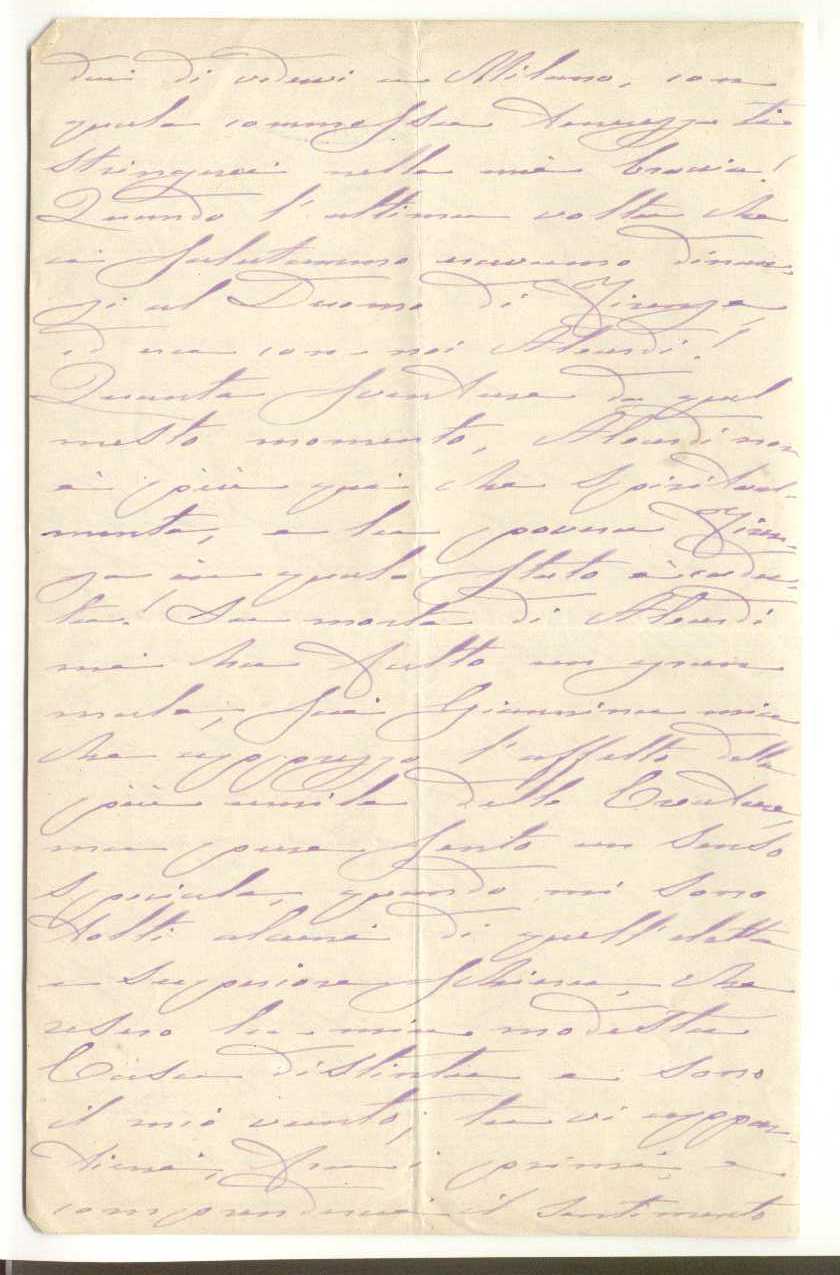 drei di vederci a Milano, con
quale commossa tenerezza ti
stringerei nelle mie braccia!
Quando l'ultima volta che
ci salutammo eravamo dinan-
zi al Duomo di Firenze,
ed era con noi Aleardi!
Quante sventure da quel
mesto momento, Aleardi non
è più qui che spiritual-
mente, e la povera Firen-
ze in quale stato è cadu-
ta! La morte di Aleardi
mi ha fatto un gran
male, sai Giannina mia
che apprezzo l'affetto della
più umile delle Creature,
ma pure sento un senso
speciale, quando mi sono
tolti alcuni di quell'eletta
e superiore schiera, che
resero la mia modesta
Casa distinta e sono
il mio vanto, tu vi appar-
tieni, fra i primi, e
comprenderai il sentimento